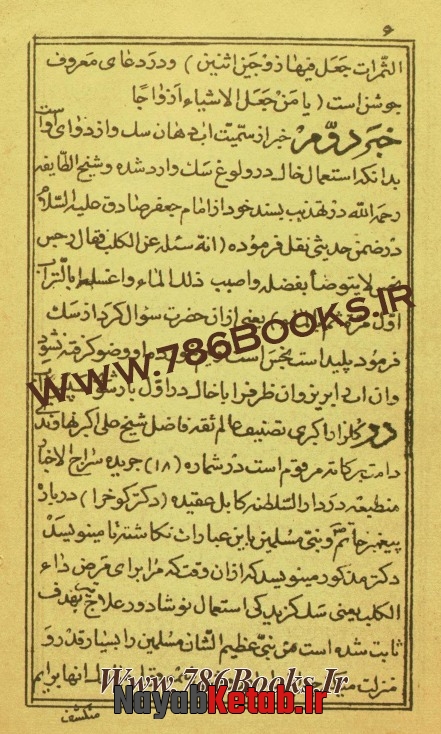 ۶
الثمرات جعل فیها زوجین اثنین) و در دعای معروف
جوشن است (یا من جعل الاشیاء ازواجا)
خبر دوم خبر از سمیت آب دهان سگ و از دوای او است
بدانکه استعمال خاک در ولوغ سگ وارد شده و شیخ الطایفه
رحمه الله در تهذیب بسند خود از امام جعفر صادق علیه السلام
در ضمن حدیثی نقل فرموده (انه سئله عن الکلب فقال رجس
نجس لا یتوضأ بفضله و اصبب ذلک الماء و اغسله بالتراب
اول مرة ثم بالماء) یعنی از آن حضرت سؤال کرد از سگ
فرمود پلید است نجس است وضو گرفته نشود
و آن آب را بریز و آن ظرف را با خاک در اول بار
در گلزار اکبری تصنیف عالم ثقه فاضل شیخ علی اکبر نهاوندی
دامت برکاته مرقوم است در شماره (۱۸) جریده سراج الاخبار
منطبعه در دار السلطنه کابل عقیده (دکتر کوخ را) درباره
پیغمبر خاتم و نبی مسلمین باین عبارات نگاشته تا مینویسد
دکتر مذکور مینویسد که از آن وقت که مرا برای مرض داء
الکلب یعنی سگ گزیدگی استعمال نوشادر در علاج بهدف
ثابت شده است من نبی عظیم الشان مسلمین را بسیار قدر و
منزلت برایم
منکشف
WWW.786Books.IR
Www.786Books.Ir
NayabKetab.Ir